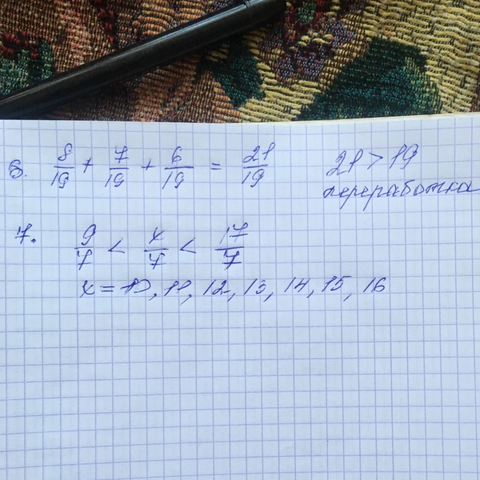 6. 8/19 + 7/19 + 6/19 = 21/19 21 > 19
переработка
7. 9/7 < x/7 < 17/7
x = 10, 11, 12, 13, 14, 15, 16